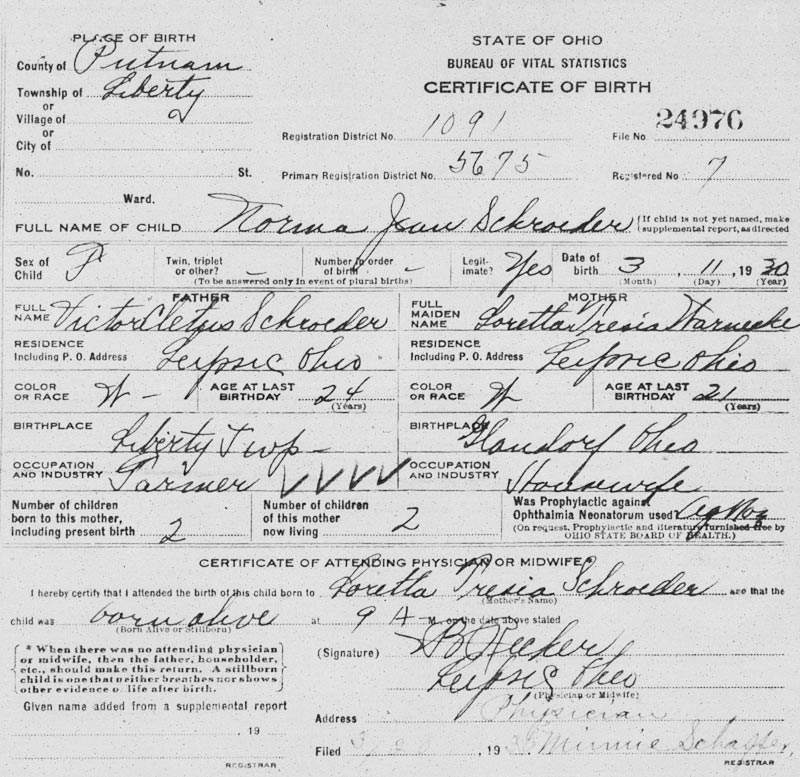 PLACE OF BIRTH
County of Putnam
Township of Liberty
or
Village of
or
City of
No. St.
Ward.
STATE OF OHIO
BUREAU OF VITAL STATISTICS
CERTIFICATE OF BIRTH
Registration District No. 1091 File No. 24976
Primary Registration District No. 5675 Registered No 7
FULL NAME OF CHILD Norma Jean Schroeder {If child is not yet named, make
supplemental report, as directed
Sex of Child F Twin, triplet or other? - Number in order of birth - Legitimate? Yes Date of birth 3, 11, 1930
(To be answered only in event of plural births) (Month) (Day) (Year)
FATHER MOTHER
FULL NAME Victor Cletus Schroeder FULL MAIDEN NAME Loretta Tresia Warnecke
RESIDENCE Including P. O. Address Leipsic Ohio RESIDENCE Including P. O. Address Leipsic Ohio
COLOR OR RACE W - AGE AT LAST BIRTHDAY 24 (Years) COLOR OR RACE W AGE AT LAST BIRTHDAY 21 (Years)
BIRTHPLACE Liberty Twp - BIRTHPLACE Glandorf Ohio
OCCUPATION AND INDUSTRY Farmer OCCUPATION AND INDUSTRY Housewife
Number of children born to this mother, including present birth 2 Number of children of this mother now living 2 Was Prophylactic against Ophthalmia Neonatorum used?
(On request, Prophylactic and literature furnished free by
OHIO STATE BOARD OF HEALTH.)
CERTIFICATE OF ATTENDING PHYSICIAN OR MIDWIFE*
I hereby certify that I attended the birth of this child born to Loretta Tresia Schroeder and that the
(Mother's Name)
child was born alive at 9 A-M., on the date above stated
(Born Alive or Stillborn)
* When there was no attending physician
or midwife, then the father, householder,
etc., should make this return. A stillborn
child is one that neither breathes nor shows
other evidence of life after birth.
(Signature)
Leipsic Ohio
(Physician or Midwife)
Physician
Given name added from a supplemental report
Address
, 19
Filed 3 , 1930 Minnie Schaffer,
REGISTRAR REGISTRAR